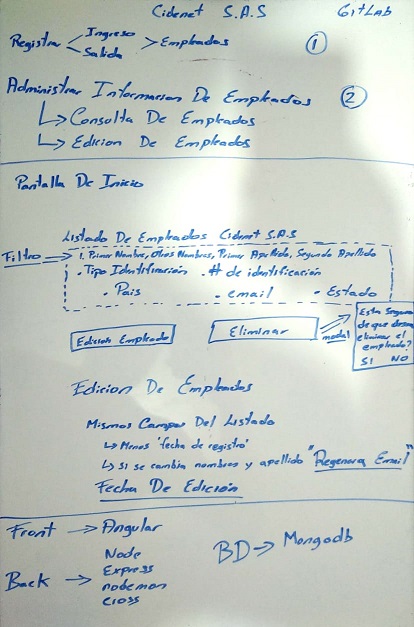 Cidenet S.A.S GitLab
Registrar Ingreso Salida > Empleados 1
Administrar Informacion De Empleados 2
Consulta De Empleados
Edicion De Empleados
Pantalla De Inicio
Listado De Empleados Cidenet S.A.S
Filtro 1. Primer Nombre, Otros Nombres, Primer Apellido, Segundo Apellido
. Tipo Identificación . # de identificación
. Pais . email . Estado
Edicion Empleado Eliminar modal
Esta Seguro
de que desea
eliminar el
empleado?
SI NO
Edicion De Empleados
Mismos Campos Del Listado
Menos 'fecha de registro'
Si se cambia nombres y apellido "Regenera Email"
Fecha De Edición
Front → Angular
Back → Node
Express
nodemon
cross
BD → Mongodb